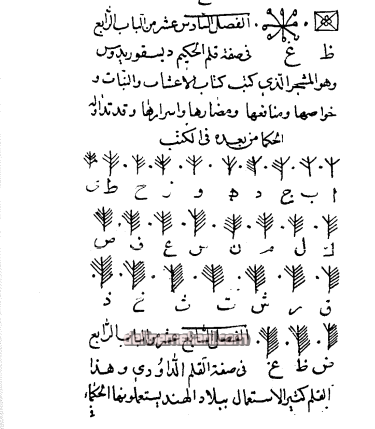 الفصل السادس عشر من الباب الرابع
ظ غ في صفة قلم الحكيم ديسقوريدوس
وهو المشجر الذي كتب كتاب الاعشاب والنبات و
خواصها ومنافعها ومضارها واسرارها وقد تداوله
الحكما من بعده في الكتب
ا ب ج د ه و ز ح ط ى
ك ل م ن س ع ف ص
ق ر ش ت ث خ ذ
الفصل السابع عشر من الباب الرابع
ض ظ غ في صفة القلم الداودي وهذا
القلم كثير الاستعمال ببلاد الهند يستعملونها الحكماء